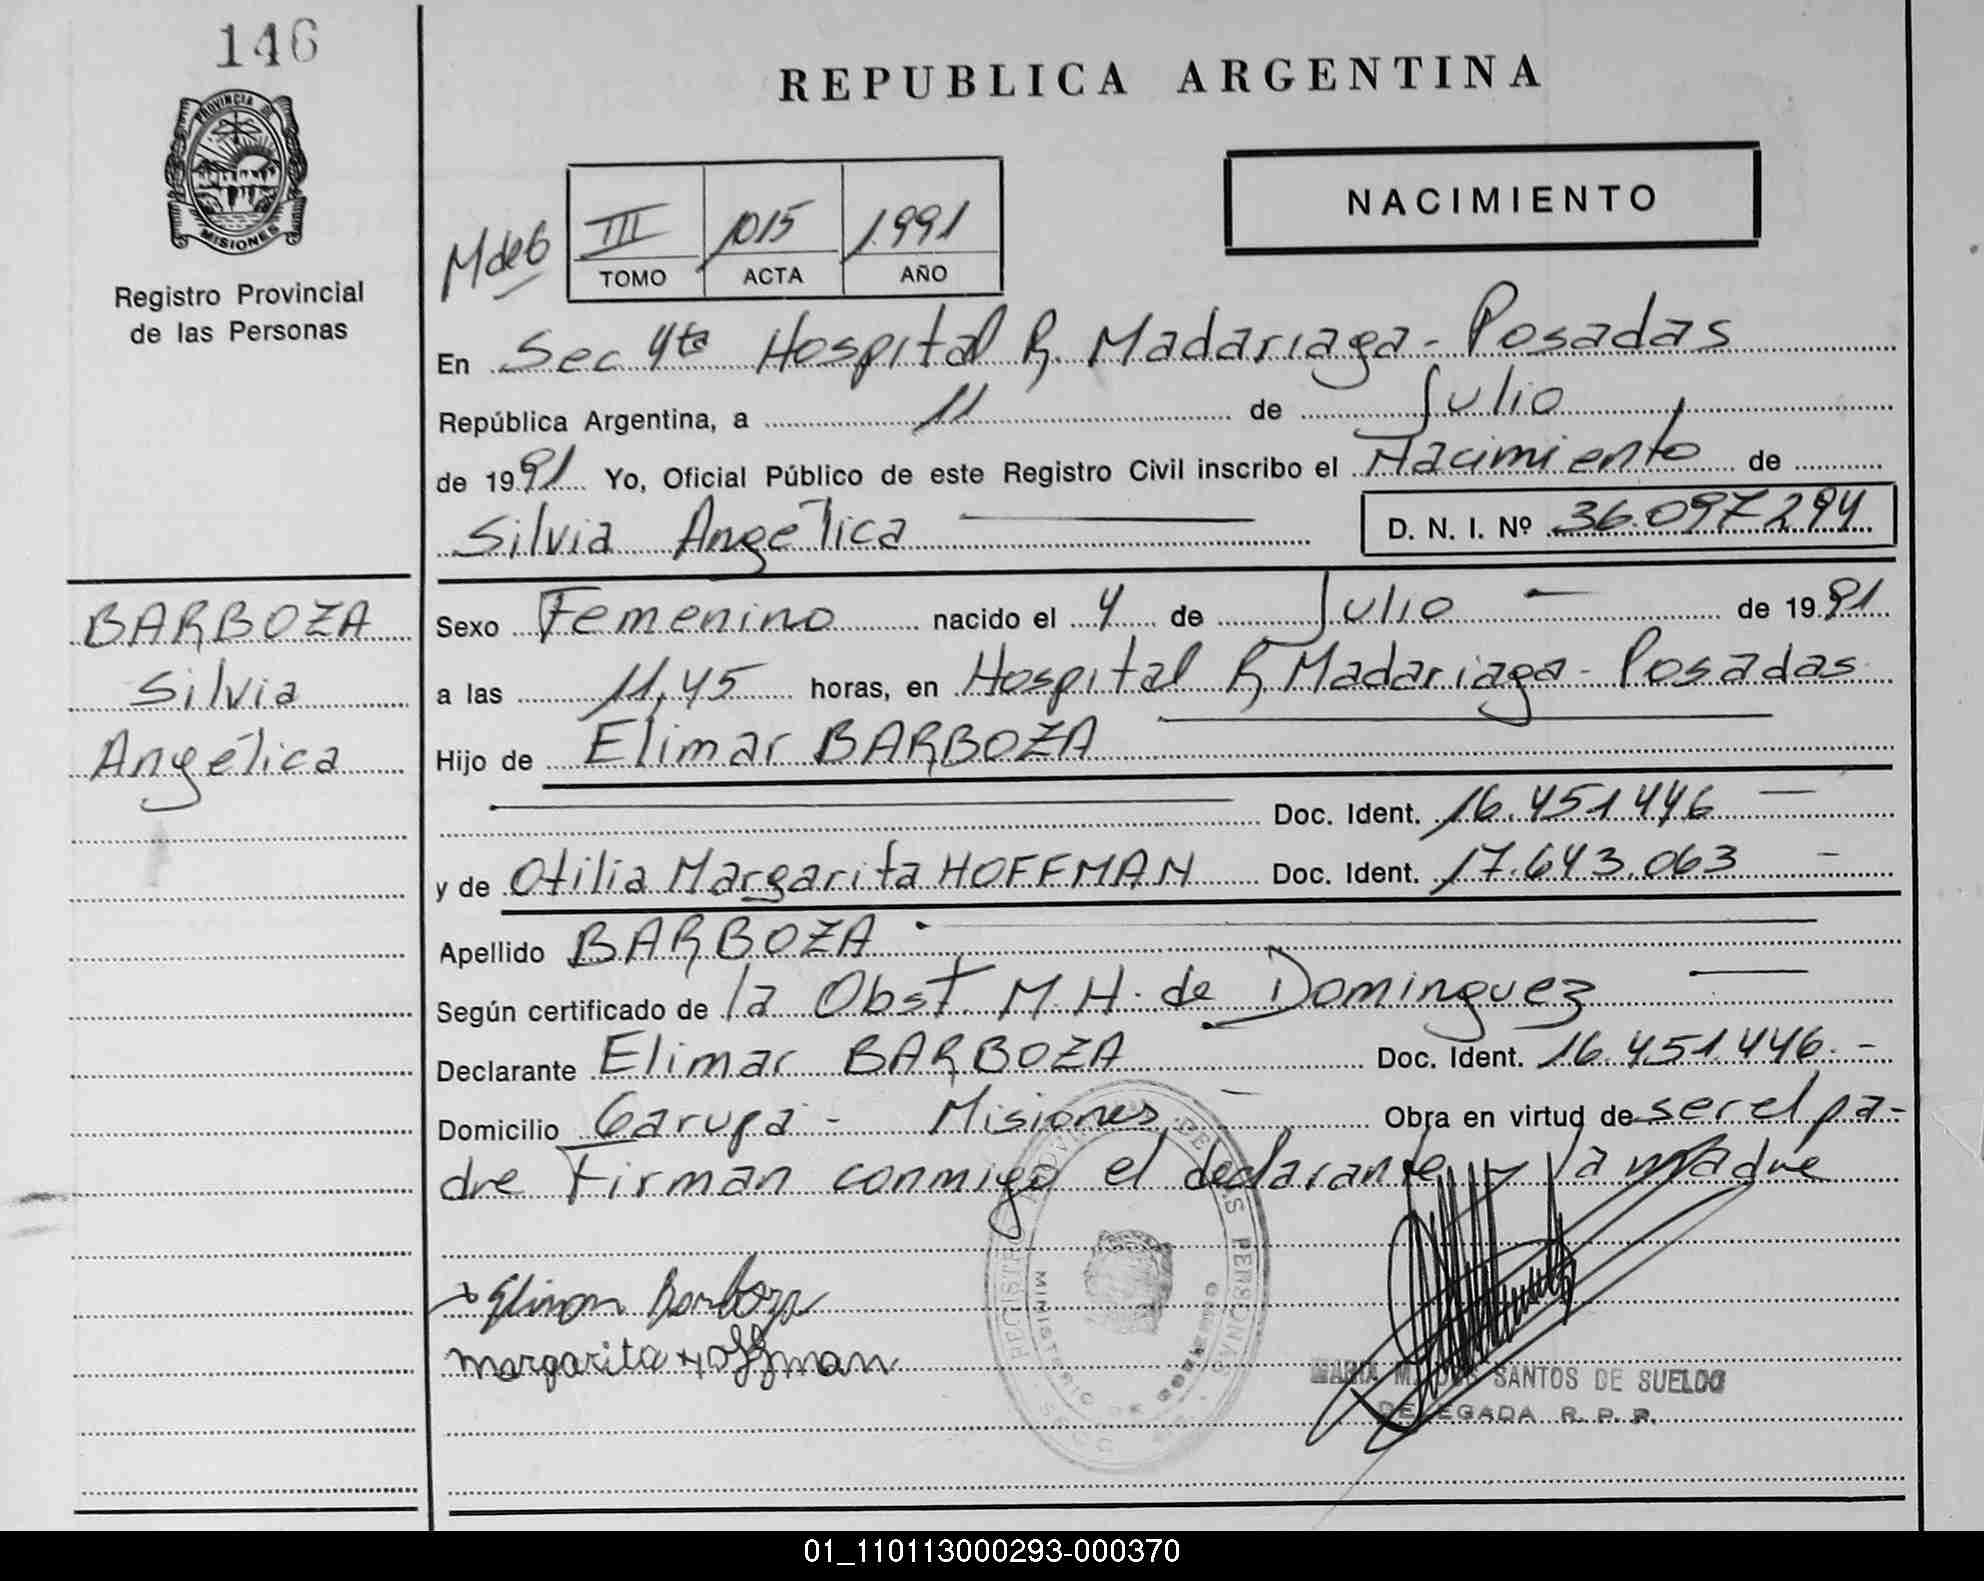 146
PROVINCIA DE
MISIONES
Registro Provincial
de las Personas
REPUBLICA ARGENTINA
NACIMIENTO
MdeG
III 1015 1991
TOMO ACTA AÑO
En Sec 4ta Hospital R. Madariaga - Posadas
República Argentina, a 11 de Julio
de 1991 Yo, Oficial Público de este Registro Civil inscribo el Nacimiento de
Silvia Angélica
D. N. I. Nº 36.097.294
BARBOZA
Silvia
Angélica
Sexo Femenino nacido el 4 de Julio — de 1991
a las 11,45 horas, en Hospital R. Madariaga - Posadas
Hijo de Elimar BARBOZA
Doc. Ident. 16.451446 —
y de Otilia Margarita HOFFMAN Doc. Ident. 17.643.063 -
Apellido BARBOZA
Según certificado de la Obst. M. H. de Dominguez —
Declarante Elimar BARBOZA Doc. Ident. 16.451.446. -
Domicilio Garupa - Misiones Obra en virtud de ser el pa-
dre Firman conmigo el declarante y la madre
Elimar Barboza
Margarita Hoffman
DE LAS PERSONAS
MINISTERIO DE GOBIERNO
MARIA M. DOS SANTOS DE SUELDO
DELEGADA R. P. P.
01_110113000293-000370